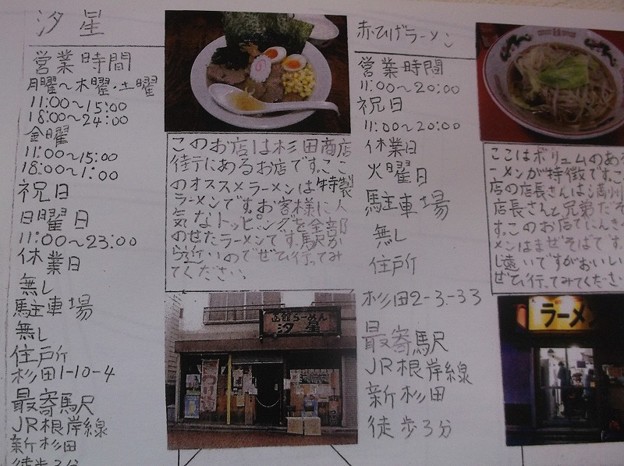 汐星
営業時間
月曜〜木曜・土曜
11:00〜15:00
18:00〜24:00
金曜
11:00〜15:00
18:00〜1:00
祝日
日曜日
11:00〜23:00
休業日
無し
駐車場
無し
住所
杉田1-10-4
最寄駅
JR根岸線
新杉田
徒歩3分
このお店は杉田商店
街にあるお店です。ここ
のオススメラーメンは特製
ラーメンです。お客様に人
気なトッピングを全部
のせたラーメンです。駅か
ら近いのでぜひ行ってみ
てください。
らーめん
汐星
赤ひげラーメン
営業時間
11:00〜20:00
祝日
11:00〜20:00
休業日
火曜日
駐車場
無し
住所
杉田2-3-33
最寄馬尺
JR根岸線
新杉田
徒歩3分
ここはボリュムのある
ラーメンが特徴です。こ
店の店長さんは
店長さんと兄弟だそ
す。このお店でにんき
メンはまぜそばです。
し遠いですがおいし
ぜひ行ってみてくださ
ラーメン